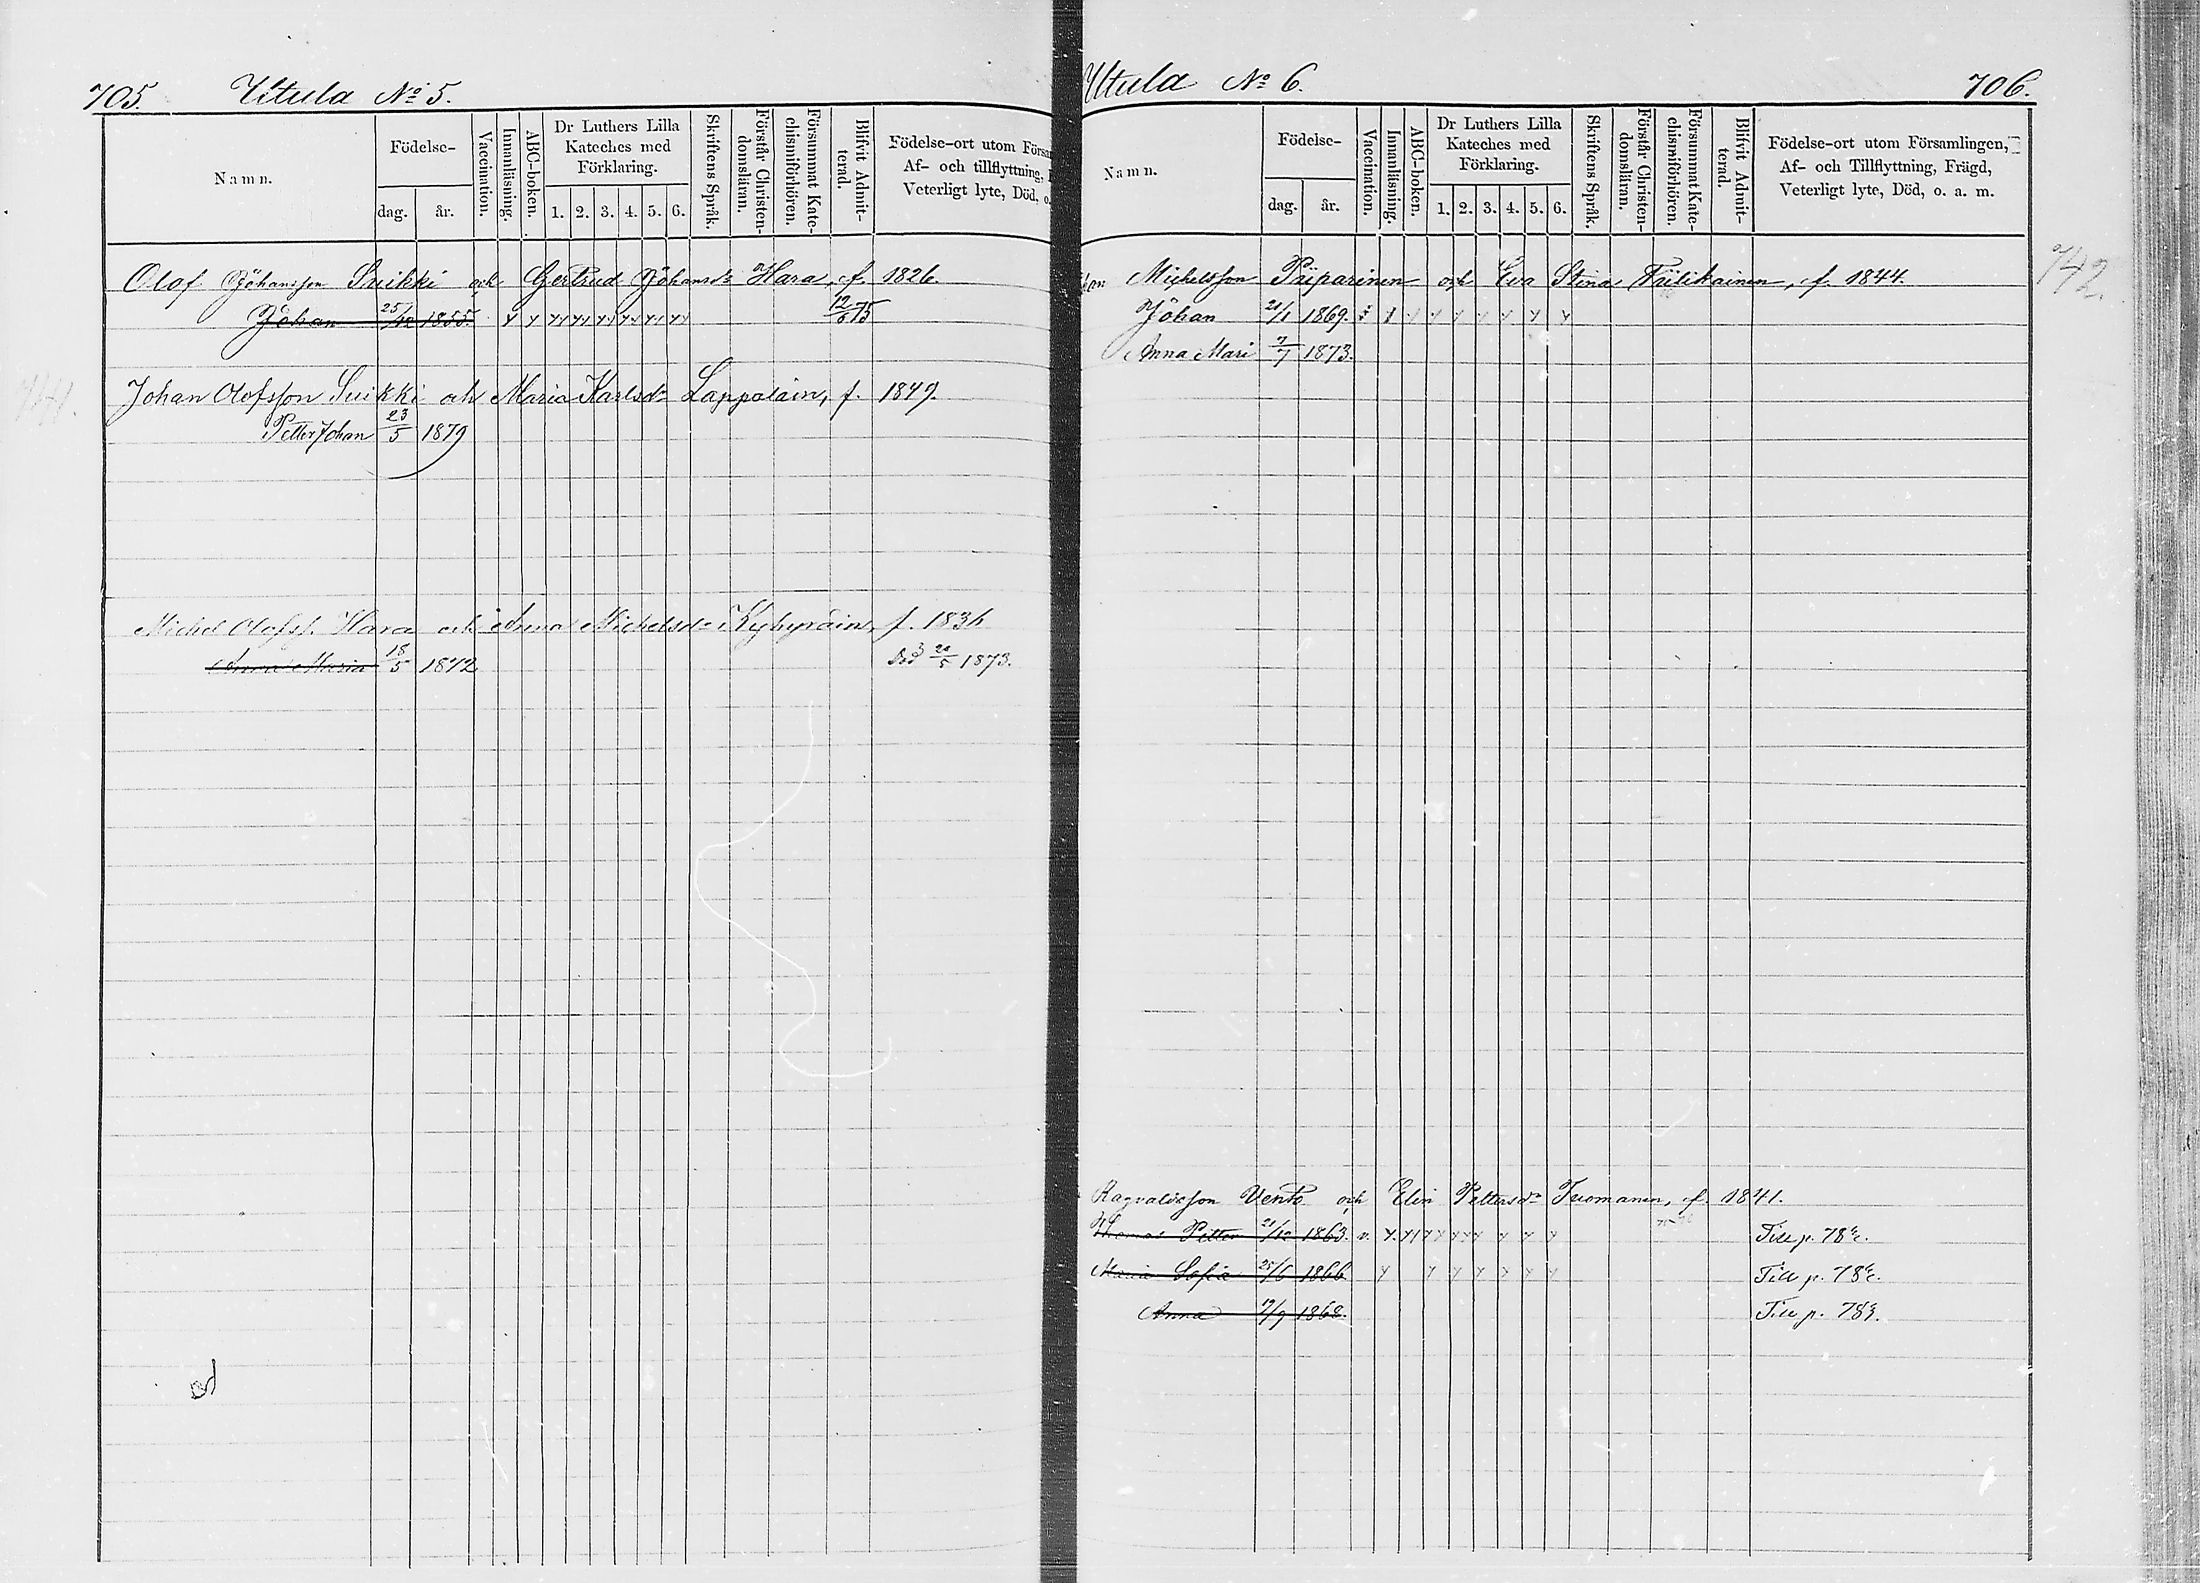 705. Utula No 5.
Namn.
Födelse-
dag. år.
Vaccination.
Innanläsning.
ABC-boken.
Dr Luthers Lilla
Kateches med
Förklaring.
1. 2. 3. 4. 5. 6.
Skriftens Språk.
Förstår Christen-
domsläran.
Försummat Kate-
chismiförhören.
Blifvit Admit-
terad.
Födelse-ort utom Försa
Af- och tillflyttning,
Veterligt lyte, Död, o.
Olof Johansson Suikki och Gertrud Johansdr Hara, f. 1826.
Johan 25/12 1855. 12/6 75
Johan Olofsson Suikki och Maria Karlsdr Lappalain, f. 1849.
Petter Johan 23/5 1879
Michel Olofss. Hara och Anna Michelsdr Kyhyräin, f. 1834
Anna Maria 18/5 1872 Död 1873.
Utula No 6. 706.
Namn.
Födelse-
dag. år.
Vaccination.
Innanläsning.
ABC-boken.
Dr Luthers Lilla
Kateches med
Förklaring.
1. 2. 3. 4. 5. 6.
Skriftens Språk.
Förstår Christen-
domsläran.
Försummat Kate-
chismiförhören.
Blifvit Admit-
terad.
Födelse-ort utom Församlingen,
Af- och Tillflyttning, Frägd,
Veterligt lyte, Död, o. a. m.
742.
Michelsson Piiparinen och Eva Stina Tiilikainen, f. 1844.
Johan 21/1 1869.
Anna Mari 7/7 1873.
Ragvaldsson Vento och Elin Pettersdr Tuomanen, f. 1841.
Thomas Petter 21/12 1863. v. Till p. 782.
Maria Sofia 25/6 1866 Till p. 782.
Anna 19/9 1868. Till p. 783.